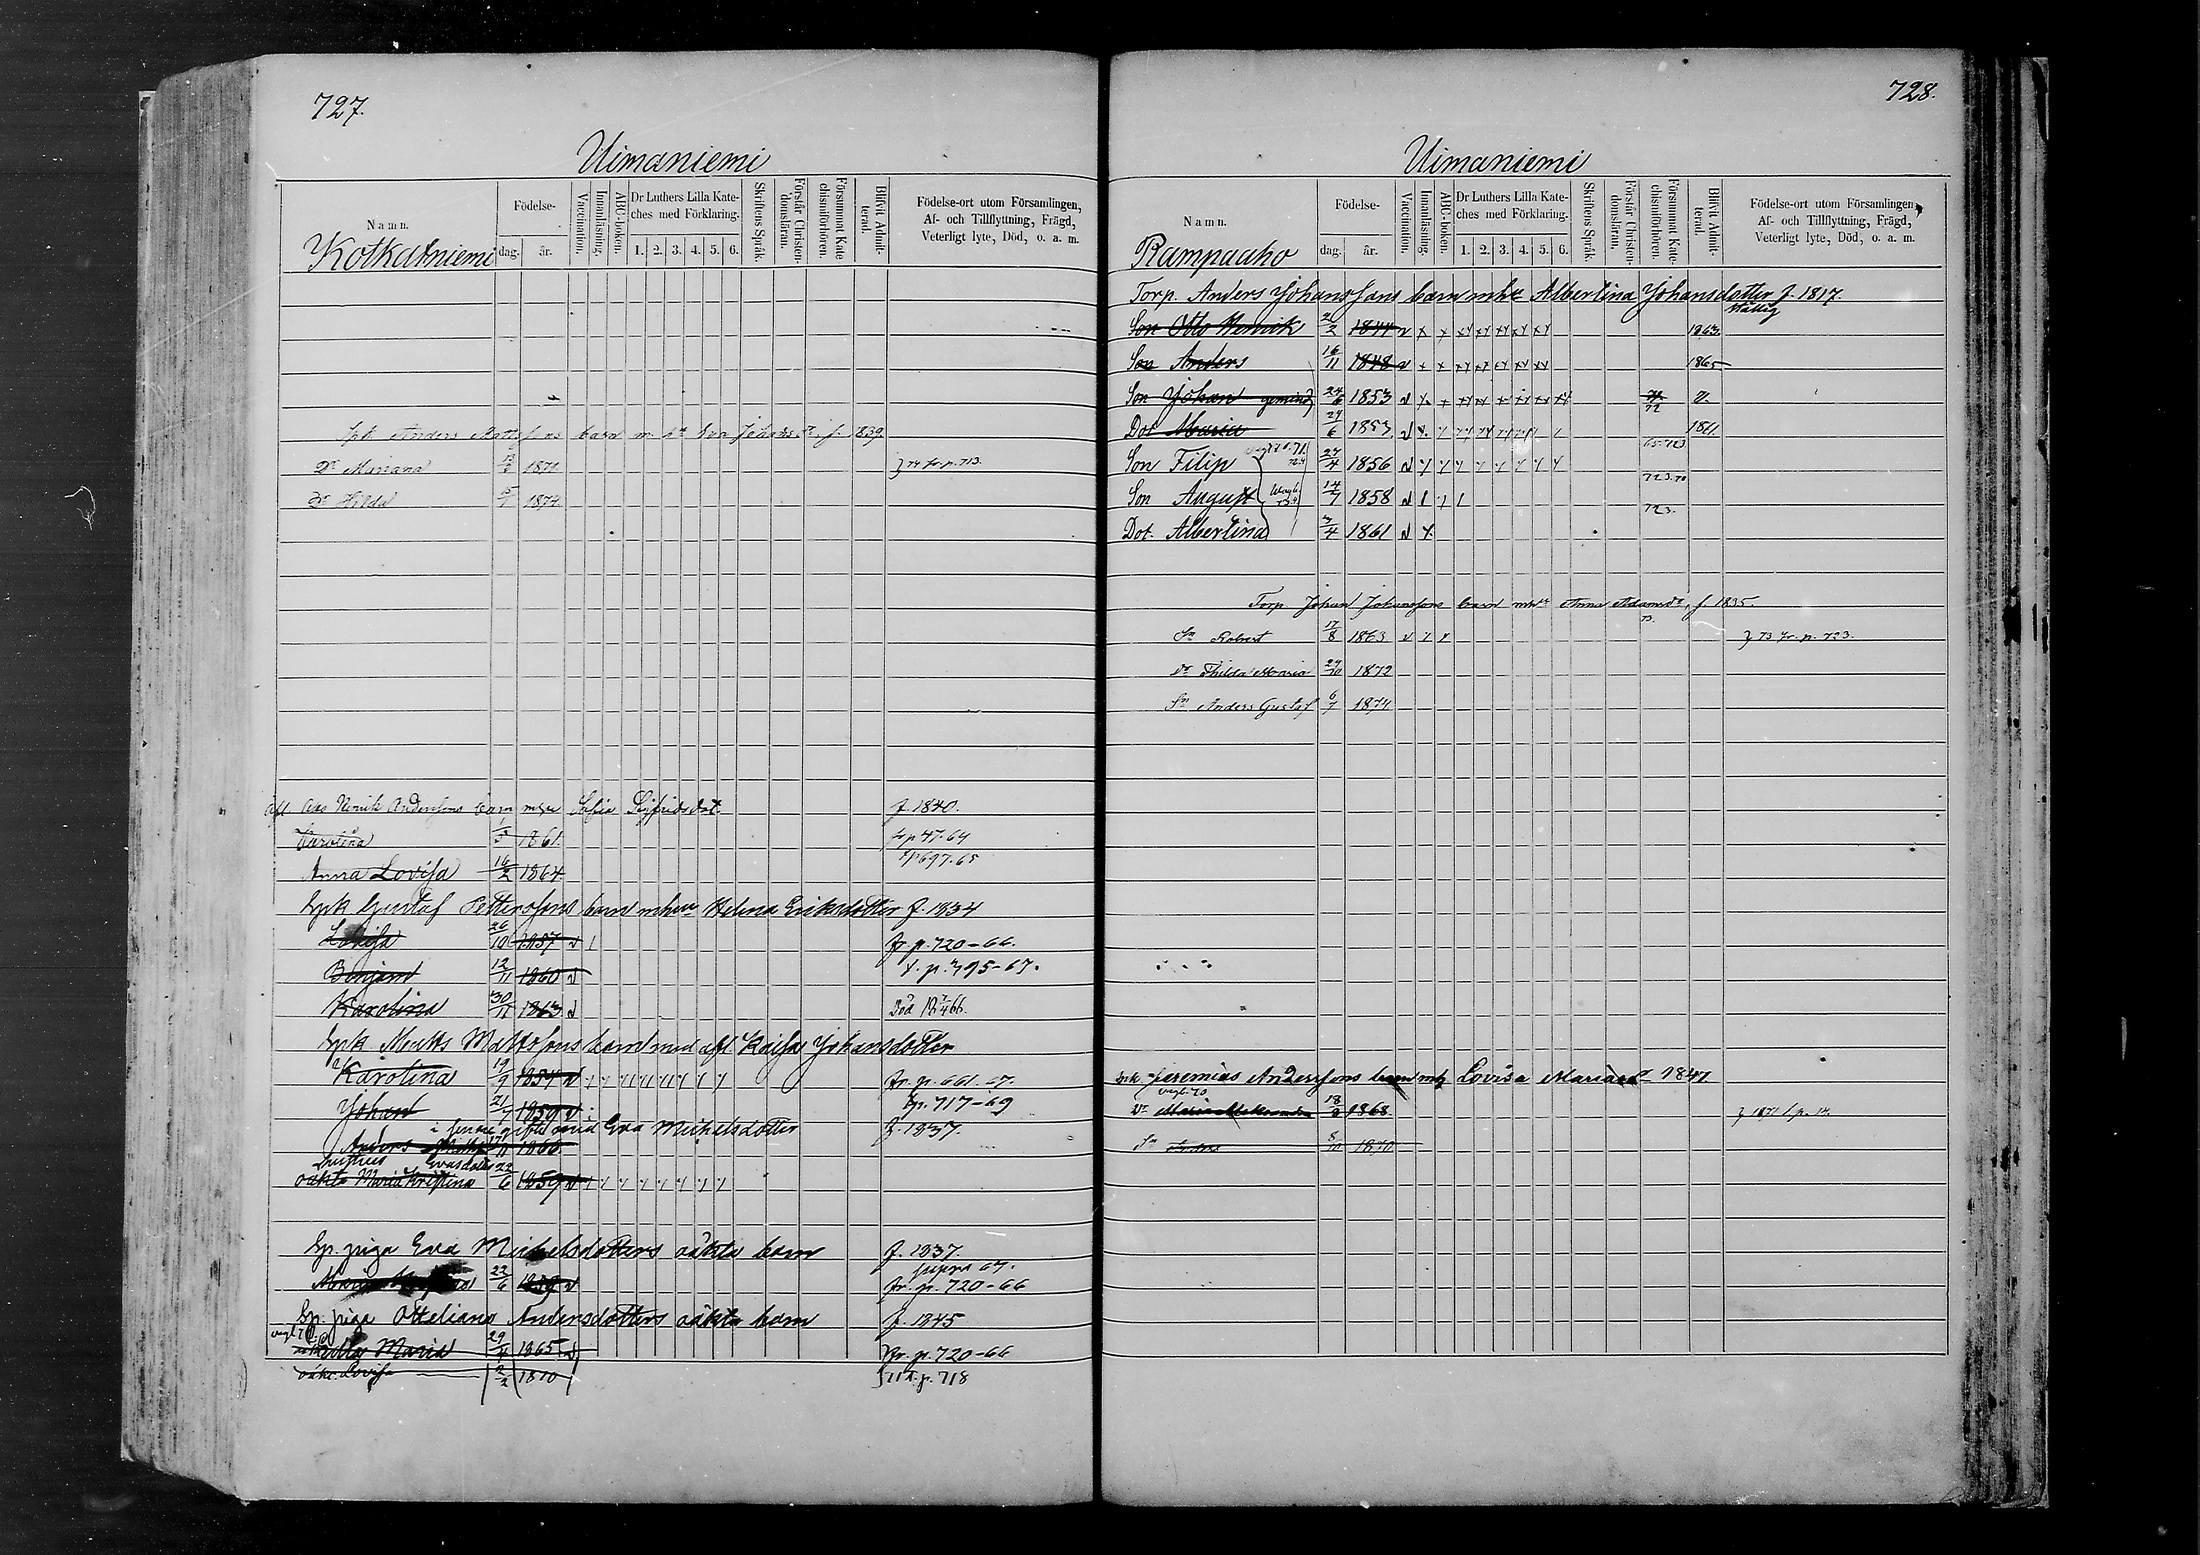 727.
Uimaniemi
Namn.
Kotkatniemi
Födelse-
dag. år.
Vaccination.
Innanläsning.
ABC-boken.
Dr Luthers Lilla Kate-
ches med Förklaring.
1. 2. 3. 4. 5. 6.
Skriftens Språk.
Förstår Christen-
domsläran.
Försummat Kate-
chismiförhören.
Blifvit Admit-
terad.
Födelse-ort utom Församlingen,
Af- och Tillflyttning, Frägd,
Veterligt lyte, Död, o. a. m.
Spk Anders Mattssons barn m. h. Eva Johansdr. f. 1839.
Dr Mariana 1871 74 fr. p. 713.
Dr Hilda 1874
Afl Otto Henrik Anderssons barn mhu Sofia Sigfridsdot. f. 1840.
Karolina 1/5 1861. fr p 47-64
p 697-65
Anna Lovisa 16/2 1864
Spk Gustaf Petterssons barn mhu Helena Eriksdotter f. 1834
Lovisa 26/10 1857 fr p. 720-66.
Benjam 12/11 1860 t. p. 795-67.
Karolina 30/11 1863 Död 18 7/4 66.
Spk Matts Mattssons barn med afl. Kaisa Johansdotter
Karolina 19/9 1854 fr. p. 661-67.
Johan 21/7 1859 tp. 717-69
i senare gifte med Eva Michelsdotter f. 1837.
Anders 17/11 1866
hustrus Evas dotter
oäkta Maria Kristina 22/6 1859
Sp. piga Eva Michelsdotters oäkta barn f. 1837.
supra 67.
Maria 22/6 1859 fr. p. 720-66
Sp. piga Otteliana Andersdotters oäkta barn f. 1845
Ulla Maria 29/4 1865 fr. p. 720-66
oäkt. Lovisa 2/2 1870 71 t. p. 718
728.
Uimaniemi
Namn.
Rampaaho
Födelse-
dag. år.
Vaccination.
Innanläsning.
ABC-boken.
Dr Luthers Lilla Kate-
ches med Förklaring.
1. 2. 3. 4. 5. 6.
Skriftens Språk.
Förstår Christen-
domsläran.
Försummat Kate-
chismiförhören.
Blifvit Admit-
terad.
Födelse-ort utom Församlingen,
Af- och Tillflyttning, Frägd,
Veterligt lyte, Död, o. a. m.
Torp. Anders Johanssons barn mhu Albertina Johansdotter f. 1817.
Son Otto Henrik 21/2 1844 1863.
Son Anders 16/11 1848 1865
Son Johan 24/6 1853 72
Dot Maria 24/6 1853 1861.
Son Filip 24/4 1856 65-723
Son August 14/7 1858 723.70
723.
Dot. Albertina 3/4 1861
Torp. Johan Johanssons barn mhu Anna Adamsdr. f. 1835.
73.
Sn Robert 17/8 1863 73 fr. p. 723.
Dr Thilda Maria 24/10 1872
Sn Anders Gustaf 6/7 1874
Spk Jeremias Anderssons barn mh Lovisa Mariasdr 1847
Dr Maria 18/9 1868 1871 t. p. 14
Sn 1870